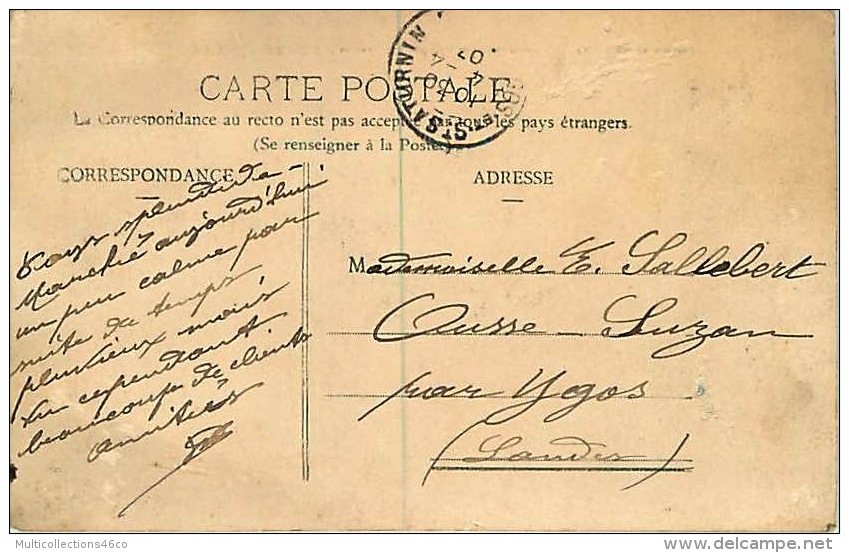 CARTE POSTALE
La Correspondance au recto n'est pas acceptée par tous les pays étrangers.
(Se renseigner à la Poste)
ST SATURNIN
CORRESPONDANCE
ADRESSE
Pays splendide -
Marché aujourd'hui
un peu calme par
suite du temps
pluvieux mais
vu cependant
beaucoup de clients
amitiés
Mademoiselle E. Sallebert
Ousse-Suzan
par Ygos
(Landes)
Multicollections46co
delcampe.net